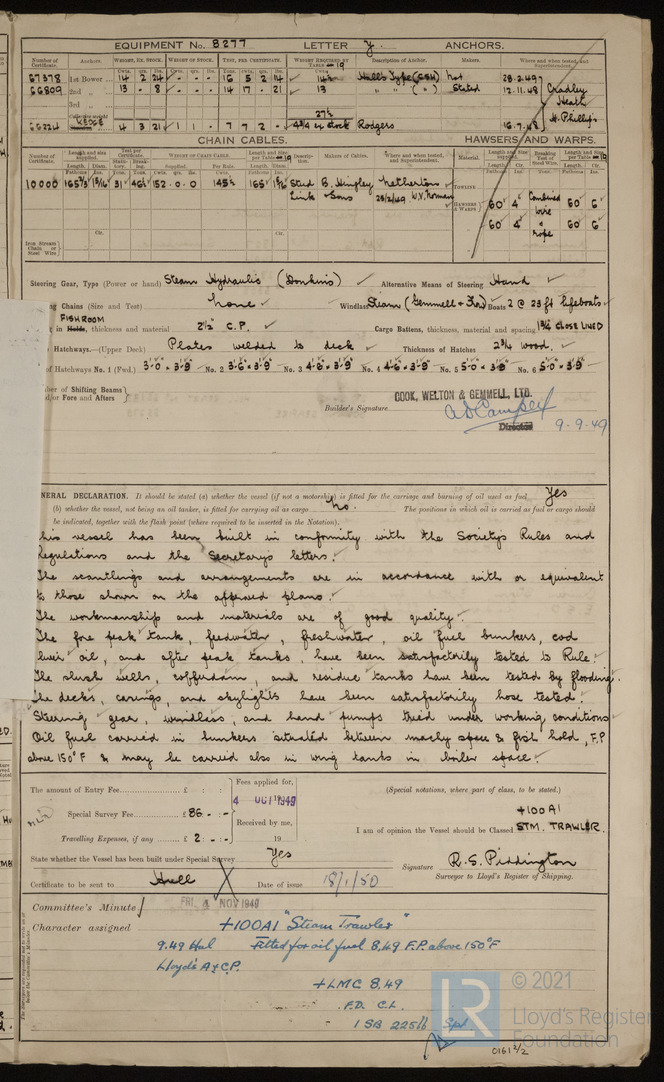 EQUIPMENT No. 8277 LETTER y. ANCHORS.
Number of Certificate. Anchors. WEIGHT, EX. STOCK. WEIGHT OF STOCK. TEST, PER CERTIFICATE. WEIGHT REQUIRED BY TABLE 19 Description of Anchor. Makers. Where and when tested, and Superintendent.
Cwts. qrs. lbs.
67378 1st Bower 14 2 24 16 5 2 14 Hall's Type (CSH) Not 28.2.49
66809 2nd „ 13 - 8 14 17 - 21 13 „ „ („) Stated 12.11.48 Cradley Heath
3rd „ 27½
66224 KEDGE 4 3 21 1 1 - 7 7 2 - 4¾ ex stock Rodgers 16.7.48 H. Phillips
CHAIN CABLES. HAWSERS AND WARPS.
10000 165 1 5/16 31 152.0.0 145½ 165 1 5/16 Stud Link E. Hingley & Sons Netherton 25/2/49 TOWLINE
HAWSERS & WARPS 60 4" Combined wire & rope 60 6"
60 4" 60 6"
Iron Stream Chain or Steel Wire
Steering Gear, Type (Power or hand) Steam Hydraulic (Donkins) Alternative Means of Steering Hand
Chains (Size and Test) None Windlass Steam (Gemmell & Frow) Boats 2 @ 23 ft lifeboats
in Holds, FISHROOM thickness and material 2½" C.P. Cargo Battens, thickness, material and spacing 1¾" CLOSE LINED
Hatchways.—(Upper Deck) Plates welded to deck Thickness of Hatches 2¾ wood.
of Hatchways No. 1 (Fwd.) 3'·0" × 3'·9" No. 2 3'·6" × 3'·9" No. 3 4'·6" × 3'·9" No. 4 4'·6" × 3'·9" No. 5 5'·0" × 3'·9" No. 6 5'·0" × 3'·9"
of Shifting Beams and/or Fore and Afters
COOK, WELTON & GEMMELL, LTD.
Builder's Signature
Director 9-9-49
GENERAL DECLARATION. It should be stated (a) whether the vessel (if not a motorship) is fitted for the carriage and burning of oil used as fuel. Yes
(b) whether the vessel, not being an oil tanker, is fitted for carrying oil as cargo No. The positions in which oil is carried as fuel or cargo should
be indicated, together with the flash point (where required to be inserted in the Notation).
This vessel has been built in conformity with the Society's Rules and
Regulations and the Secretary's letters.
The scantlings and arrangements are in accordance with or equivalent
to those shown on the approved plans.
The workmanship and materials are of good quality.
The fore peak tank, feedwater, freshwater, oil fuel bunkers, cod
liver oil, and after peak tanks, have been satisfactorily tested to Rule.
The slush wells, cofferdam, and residue tanks have been tested by flooding.
The decks, casings, and skylights have been satisfactorily hose tested.
Steering gear, windlass, and hand pumps tried under working conditions
Oil fuel carried in bunkers situated between machy space & fish hold, F.P
above 150°F & may be carried also in wing tanks in boiler space.
The amount of Entry Fee £ : : Fees applied for,
4 OCT 1949
(Special notations, where part of class, to be stated.)
Special Survey Fee £ 86 . - . - Received by me,
Travelling Expenses, if any £ 2 . - : - 19
I am of opinion the Vessel should be Classed +100A1 STM. TRAWLER.
State whether the Vessel has been built under Special Survey Yes
Signature R.S. Piddington
Surveyor to Lloyd's Register of Shipping.
Certificate to be sent to Hull Date of issue 18/1/50
Committee's Minute FRI. 4 NOV 1949
Character assigned +100A1 "Steam Trawler"
9.49 Hul Fitted for oil fuel 8,49 F.P. above 150°F
Lloyd's A & C.P.
+LMC 8,49
F.D. C.L.
1 SB 225 lb Spt
© 2021
LR Lloyd's Register Foundation
0161 2/2